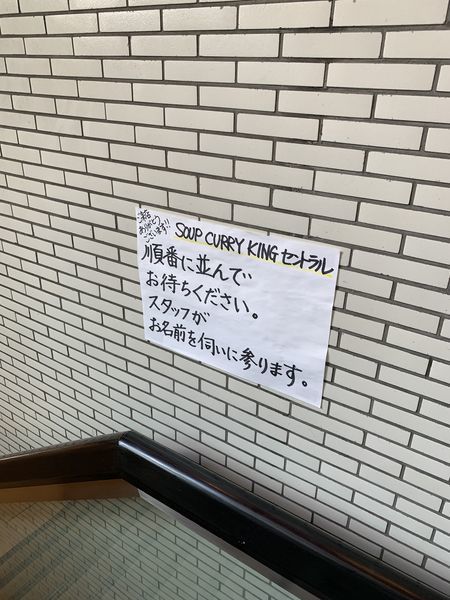 ご来店
ありがとう
ございます!!
SOUP CURRY KING セントラル
順番に並んで
お待ちください。
スタッフが
お名前を伺いに参ります。